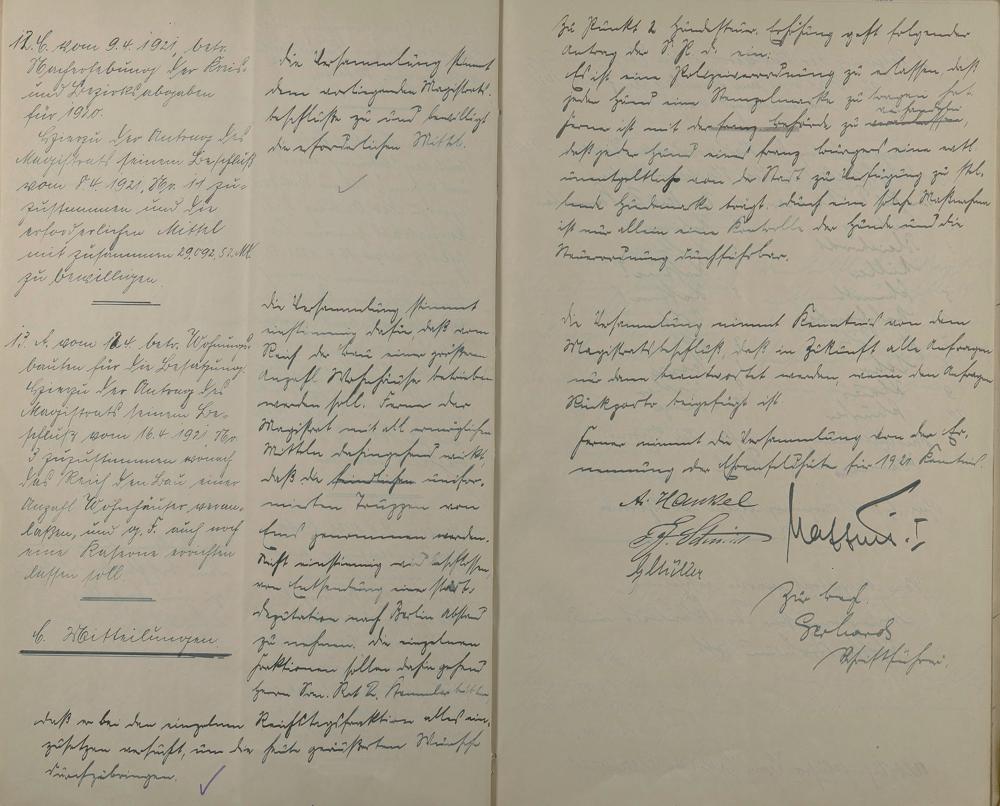 12. C. vom 9.4.1921, betr.
Nacherhebung der Kreis-
und Bezirksabgaben
für 1920.
Hierzu der Antrag des
Magistrats seinem Beschluß
vom 8.4.1921, Nr. 11 zu-
zustimmen und die
erforderlichen Mittel
mit zusammen 29,092,52 Mk
zu bewilligen.
die Versammlung stimmt
dem vorliegenden Magistrats-
beschlusse zu und bewilligt
die erforderlichen Mittel.
13. A. vom 18.4. betr. Wohnungs-
bauten für die Besatzung.
Hierzu der Antrag des
Magistrats seinem Be-
schluß vom 16.4.1921 Nr.
3 zuzustimmen wonach
das Reich den Bau einer
Anzahl Wohnhäuser veran-
laßen, und g. F. auch noch
eine Kaserne errichten
lassen soll.
die Versammlung stimmt
einstimmig dafür, daß vom
Reich der Bau einer größeren
Anzahl Wohnhäuser betrieben
werden soll. Ferner der
Magistrat mit all ermöglichen
Mitteln dahingehend wirkt,
daß die feindlichen unifor-
mierten Truppen von
Ems genommen werden.
Nicht einstimmig wird beschlossen,
von Entsendung einer Stadt-
deputation nach Berlin abstand
zu nehmen. die einzelnen
Fraktionen sollen dahin gehend
Herrn San. Rat Dr.
C. Mitteilungen.
daß er bei den einzelnen Reichstagsfraktion alles ein-
zusetzen versucht, um die heute geäußerten Wünsche
durchzubringen.
Zu Punkt 2 Hundesteuer Erhöhung geht folgender
Antrag der S. P. D. ein:
Es ist eine Polizeiverordnung zu erlassen, daß
jeder Hund eine Stempelmarke zu tragen hat
ferner ist mit der franz Behörde zu
daß jeder Hund eines franz Bürgers eine evtl.
unentgeltlich von der Stadt zu Verfügung zu stel-
lende Hundemarke trägt. durch eine solche Maßnahme
ist nur allein eine Kontrolle der Hunde und die
Steuerordnung durchführbar.
die Versammlung nimmt Kenntnis von dem
Magistratsbeschluß, daß in Zukunft alle Anfragen
nur dann beantwortet werden, wenn den Anfragen
Rückporto beigefügt ist
Ferner nimmt die Versammlung von der Er-
nennung der für 1921 Kenntnis.
A. Hankel
Müller
Zur Begl.
Gerhards
Schriftführer.